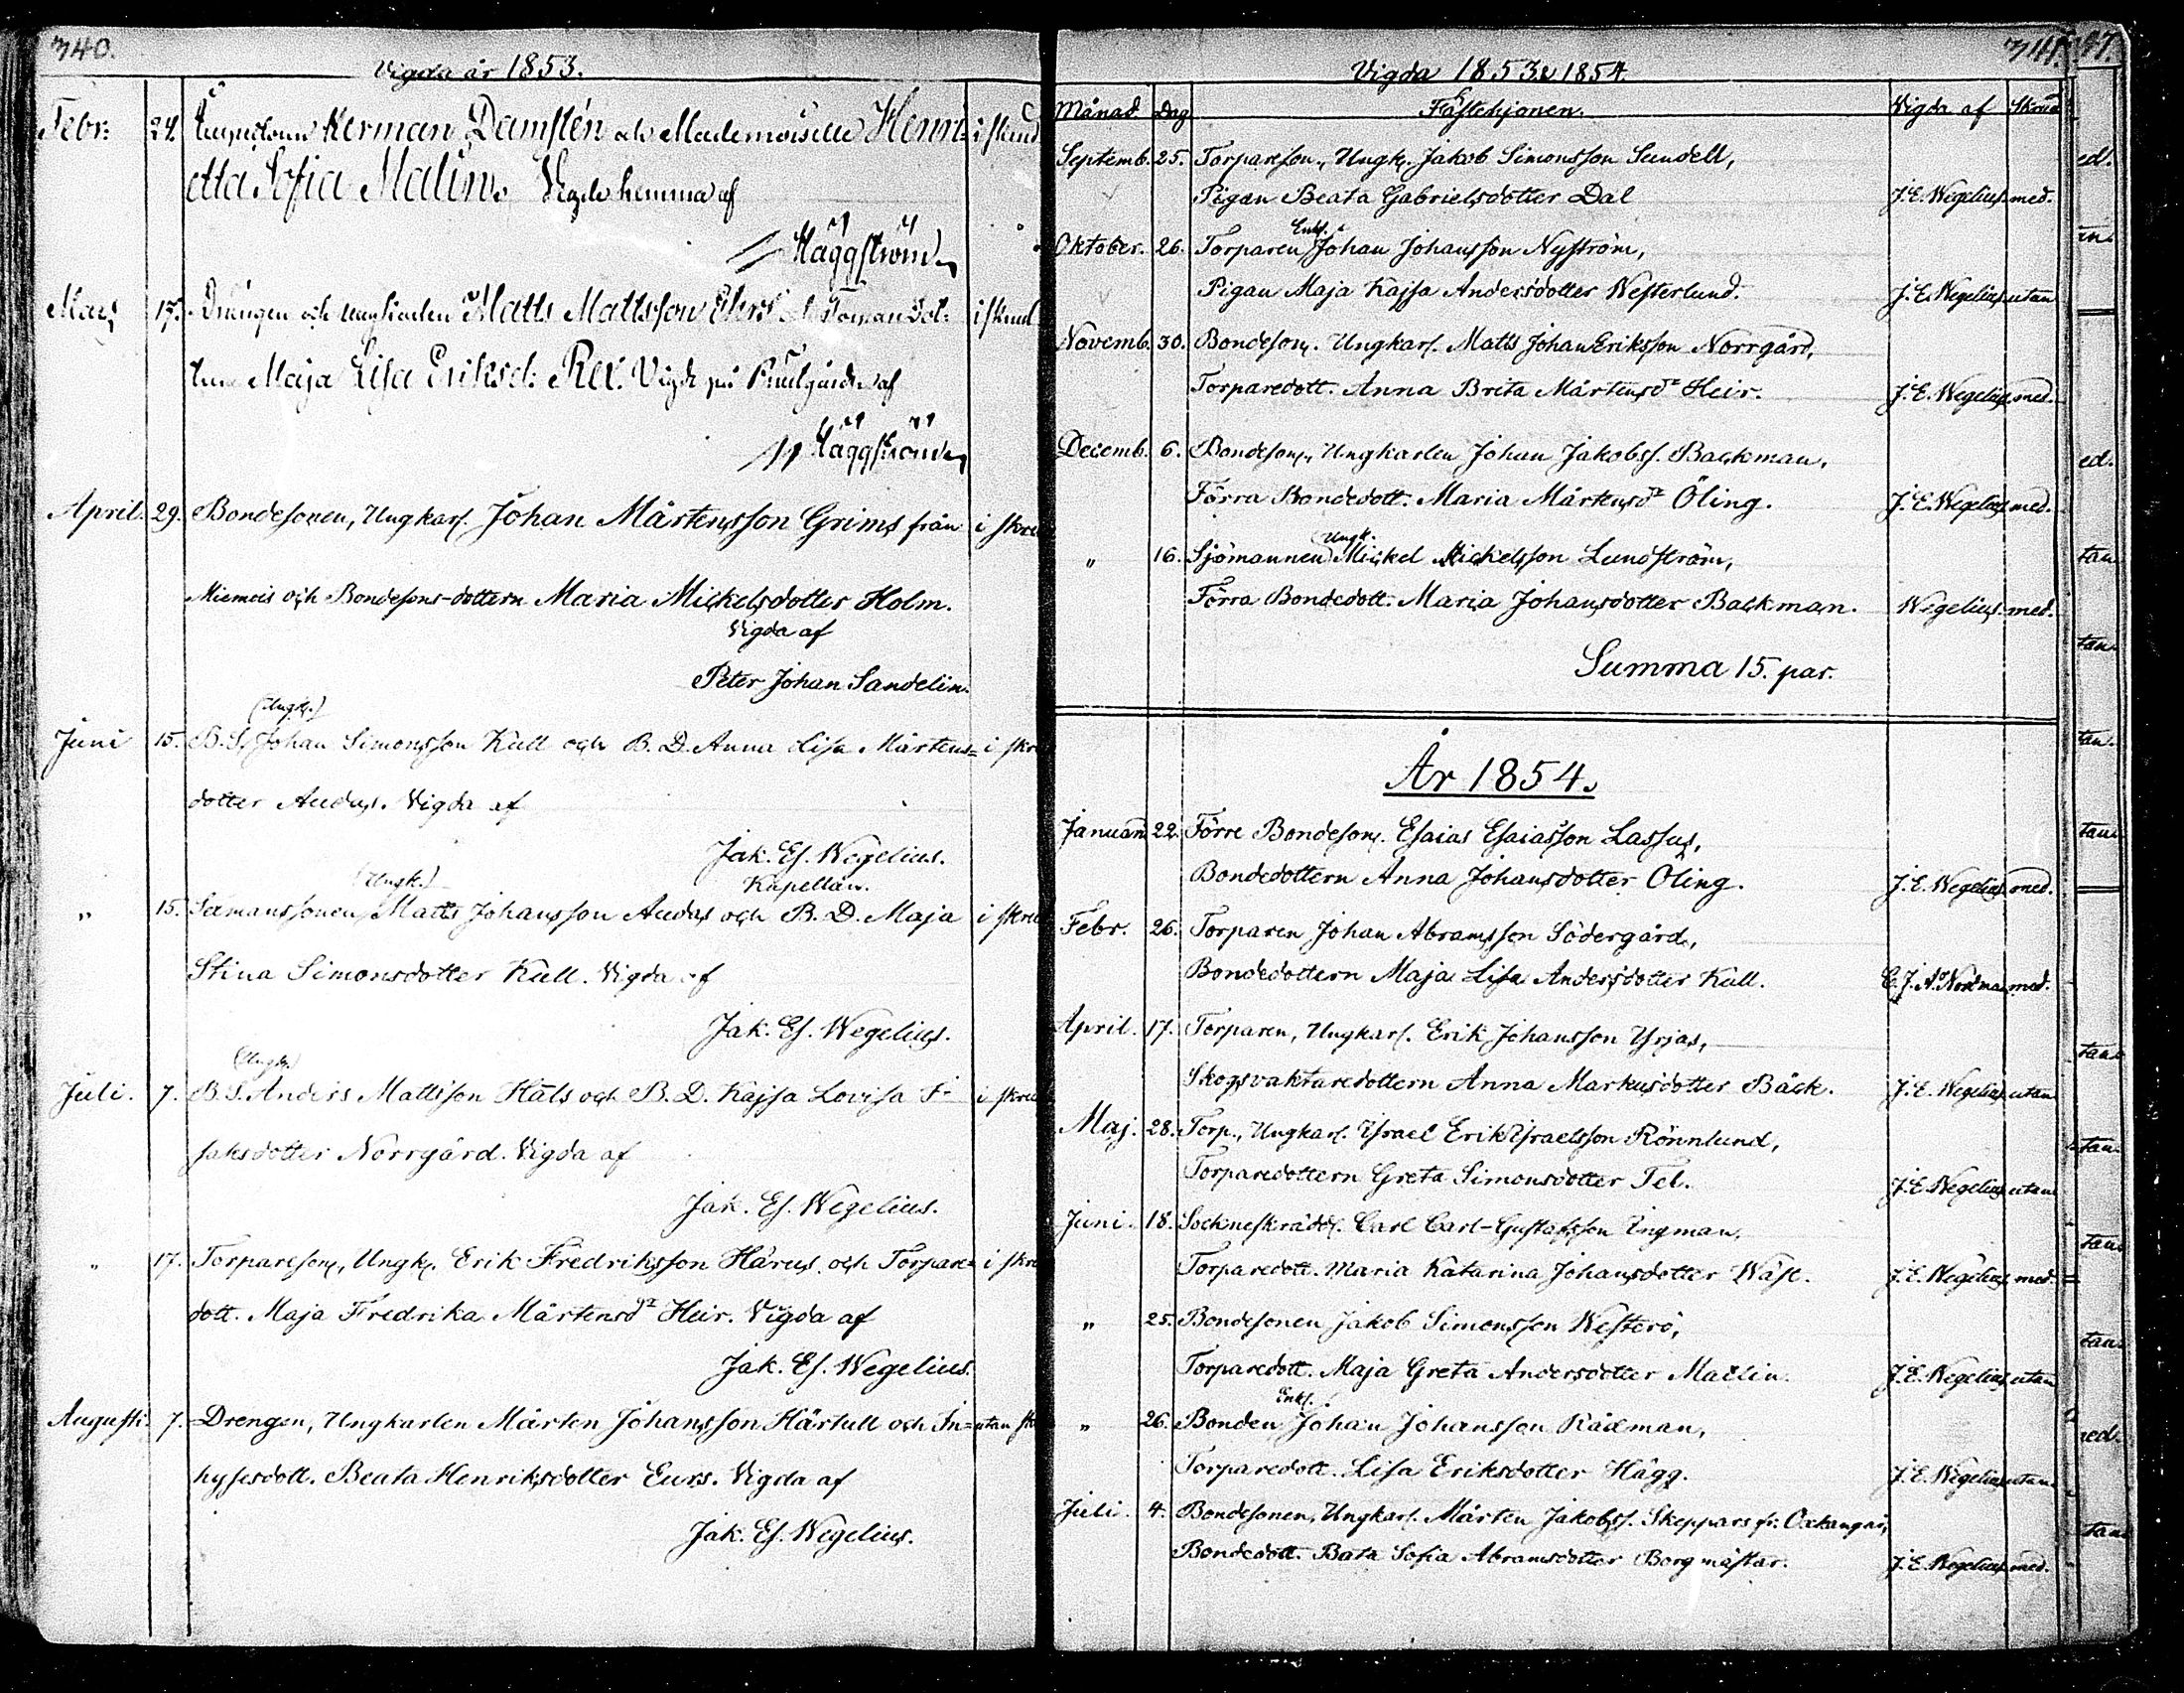 340.
Vigda år 1853.
Febr: 24. Herman Damstén och Mademoiselle Henri= i skrud
etta Sofia Malin. Vigde hemma af
Häggström
Mars 17. Drängen och Ungkarlen Matts Mattsson i skrud
Maja Lisa Eriksd: Rex. Vigde på af
Häggström
April. 29. Bondesonen, Ungkarl. Johan Mårtensson Grims från i skru
Miemois och Bondesons-dottern Maria Mickelsdotter Holm.
Vigda af
Peter Johan Sandelin.
(Ungk.)
Juni 15. B. S. Johan Simonsson Kull och B. D. Anna Lisa Mårtens= i skru
dotter Audas. Vigda af
Jak. Es. Wegelius.
Kapellan.
(Ungk.)
„ 15. Matts Johansson Audas och B. D. Maja i skru
Stina Simonsdotter Kull. Vigda af
Jak. Es. Wegelius.
(Ungk.)
Juli. 7. B. S. Anders Mattsson Hals och B. D. Kajsa Lovisa I= i skru
saksdotter Norrgård. Vigda af
Jak. Es. Wegelius.
„ 17. Torpareson, Ungk. Erik Fredriksson Härus och Torpare= i skru
dott. Maja Fredrika Mårtensdr Heir. Vigda af
Jak. Es. Wegelius.
Augusti. 7. Drengen, Ungkarlen Mårten Johansson Härtull och In= utan sk
hysesdott. Beata Henriksdotter Eurs. Vigda af
Jak. Es. Wegelius.
341.
Vigda 1853 & 1854.
Månad. Dag Fästehjonen. Vigda af Skrud
Septemb. 25. Torpareson., Ungk. Jakob Simonsson Sundell,
Pigan Beata Gabrielsdotter Dal J. E. Wegelius. med.
Enkl.
Oktober. 26. Torparen Johan Johansson Nyström,
Pigan Maja Kajsa Andersdotter Westerlund. J. E. Wegelius utan
Novemb. 30. Bondeson. Ungkarl. Matts Johan Eriksson Norrgård,
Torparedott. Anna Brita Mårtensdr Heir. J. E. Wegelius med.
Decemb. 6. Bondeson, Ungkarlen Johan Jakobss. Backman,
Förra Bondedott. Maria Mårtensdr Öling. J. E. Wegelius med.
(Ungk.
„ 16. Sjömannen Mickel Mickelsson Lundström,
Förra Bondedott. Maria Johansdotter Backman. Wegelius. med.
Summa 15. par.
År 1854.
Januari 22. Förre Bondeson. Esaias Esaiasson Lassus,
Bondedottern Anna Johansdotter Öling. J. E. Wegelius med.
Febr. 26. Torparen Johan Abramsson Södergård,
Bondedottern Maja Lisa Andersdotter Kull. E. J. A. Nordman med.
April. 17. Torparen, Ungkarl. Erik Johansson Yrjas,
Skogsvaktaredottern Anna Markusdotter Bäck. J. E. Wegelius utan
Maj. 28. Torp., Ungkarl. Israel Erik Israelsson Rönnlund,
Torparedottern Greta Simonsdotter Tel. J. E. Wegelius utan
Juni. 18. Sockneskrädd. Carl Carl-Gustafsson Engman,
Torparedott. Maria Katarina Johansdotter J. E. Wegelius med.
„ 25. Bondesonen Jakob Simonsson Westerö,
Torparedott. Maja Greta Andersdotter J. E. Wegelius utan
Enkl.
„ 26. Bonden Johan Johansson Rådman,
Torparedott. Lisa Eriksdotter Hägg. J. E. Wegelius utan.
Juli. 4. Bondesonen, Ungkarl. Mårten Jakobss. Skeppars fr. Oxkangar,
Bondedott. Bata Sofia Abramsdotter Borgmästar. J. E. Wegelius med.